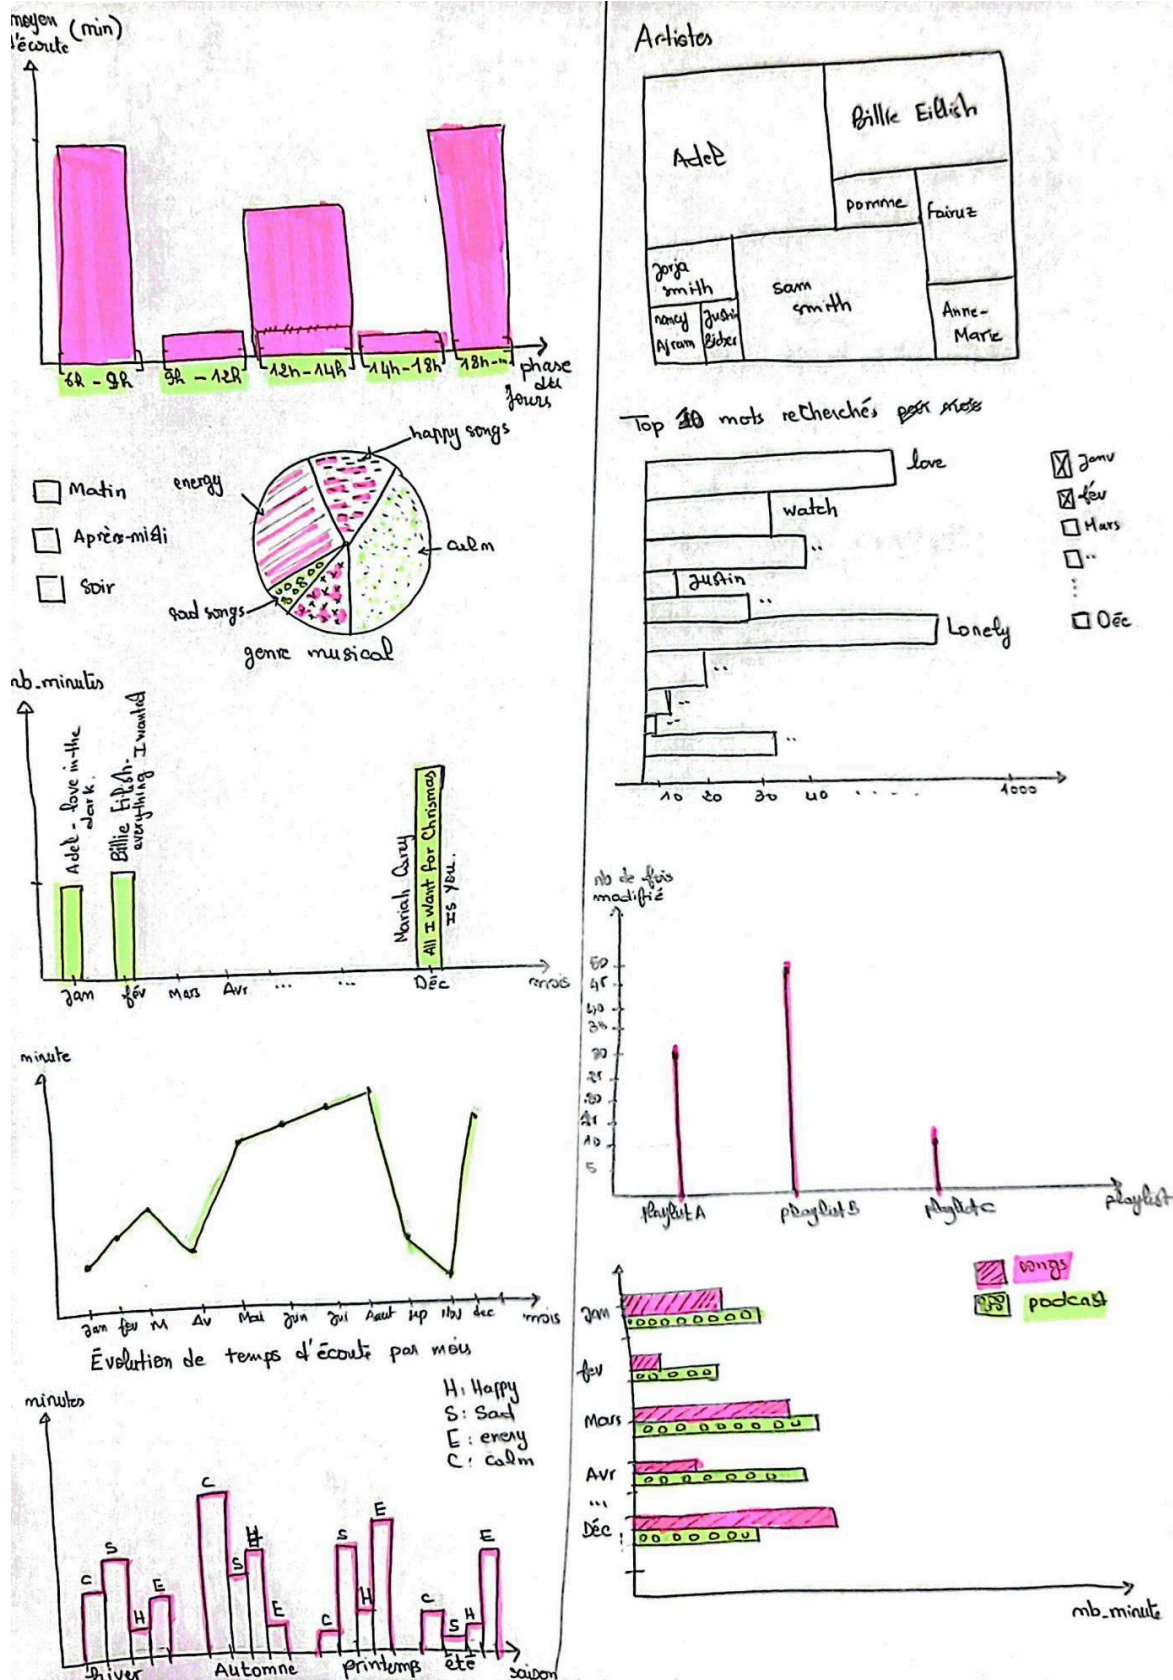 moyen (min)
d'écoute
6h - 9h
9h - 12h
12h - 14h
14h - 18h
18h-
phase
du
Jours
Matin
Après-midi
Soir
happy songs
energy
calm
sad songs
genre musical
nb.minutes
Adel - love in the
dark.
Billie Eilish-
everything I wanted
Mariah Carey
All I want for Chrismas
Is you.
Jan
fév
Mars
Avr
...
...
Déc
mois
minute
Jan
fev
M
Av
Mai
Jun
Jui
Aout
sep
Nov
dec
mois
Évolution de temps d'écoute par mois
minutes
H: Happy
S: Sad
E: enery
C: calm
C
S
H
E
C
S
H
E
C
S
H
E
C
S
H
E
hiver
Automne
printemps
été
saison
Artistes
Adel
Billie Eillish
pomme
fairuz
Jorja
smith
sam
smith
nancy
Ajram
Justin
Bieber
Anne-
Marie
Top 10 mots recherchés
love
watch
..
Justin
..
Lonely
..
..
..
..
10
20
30
40
.....
1000
Janv
fév
Mars
..
Déc
nb de fois
modifié
50
45
40
35
30
25
20
10
5
playlist A
playlist B
playlist C
playlist
songs
podcast
Jan
fev
Mars
Avr
...
Déc
nb_minute